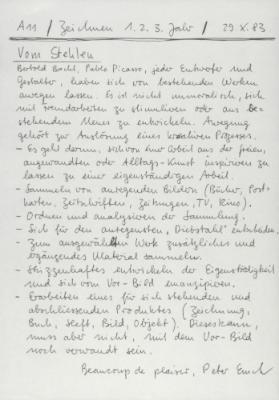 A11 / Zeichnen 1. 2. 3. Jahr / 29 X. 83
Vom Stehlen
Bertold Brecht, Pablo Picasso, jeder Entwerfer und
Gestalter, haben sich von bestehenden Werken
anregen lassen. Es ist nicht unmoralisch, sich
mit Fremdarbeiten zu stimulieren oder aus be-
stehendem Neues zu entwickeln. Anregung
gehört zur Auslösung eines kreativen Prozesses.
- Es geht darum, sich von einer Arbeit aus der freien,
angewandten oder Alltags-Kunst inspirieren zu
lassen zu einer eigenständigen Arbeit.
- Sammeln von anregenden Bildern (Bücher, Post-
karten, Zeitschriften, Zeitungen, TV, Kino).
- Ordnen und analysieren der Sammlung.
- Sich für den anregensten "Diebstahl" entscheiden.
- Zum ausgewählten Werk zusätzliches und
ergänzendes Material sammeln.
- Skizzenhaftes entwickeln der Eigenständigkeit
und sich vom Vor-Bild emanzipieren.
- Erarbeiten eines für sich stehenden und
abschliessenden Produktes (Zeichnung,
Buch, Heft, Bild, Objekt). Dieses kann,
muss aber nicht, mit dem Vor-Bild
noch verwandt sein.
Beaucoup de plaisir, Peter